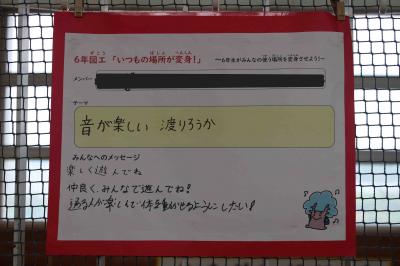 6年図工「いつもの場所が変身!」 ～6年生がみんなの使う場所を変身させよう!～
メンバー
テーマ
音が楽しい 渡りろうか
みんなへのメッセージ
楽しく遊んでね
仲良く、みんなで遊んでね!
通る人が楽しんで体を動かせるようにしたい!